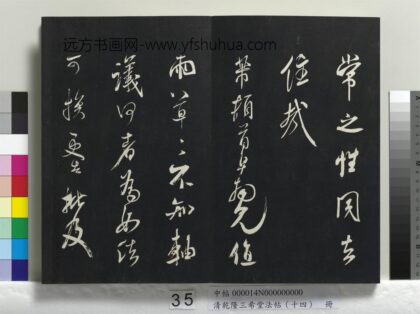 远方书画网-www.yfshuhua.com
常之性同去
住哉
頓首 值
雨草〻不知軸
議何者為如法
可換更告批及
35
中帖 000014N000000000
清乾隆三希堂法帖（十四） 冊